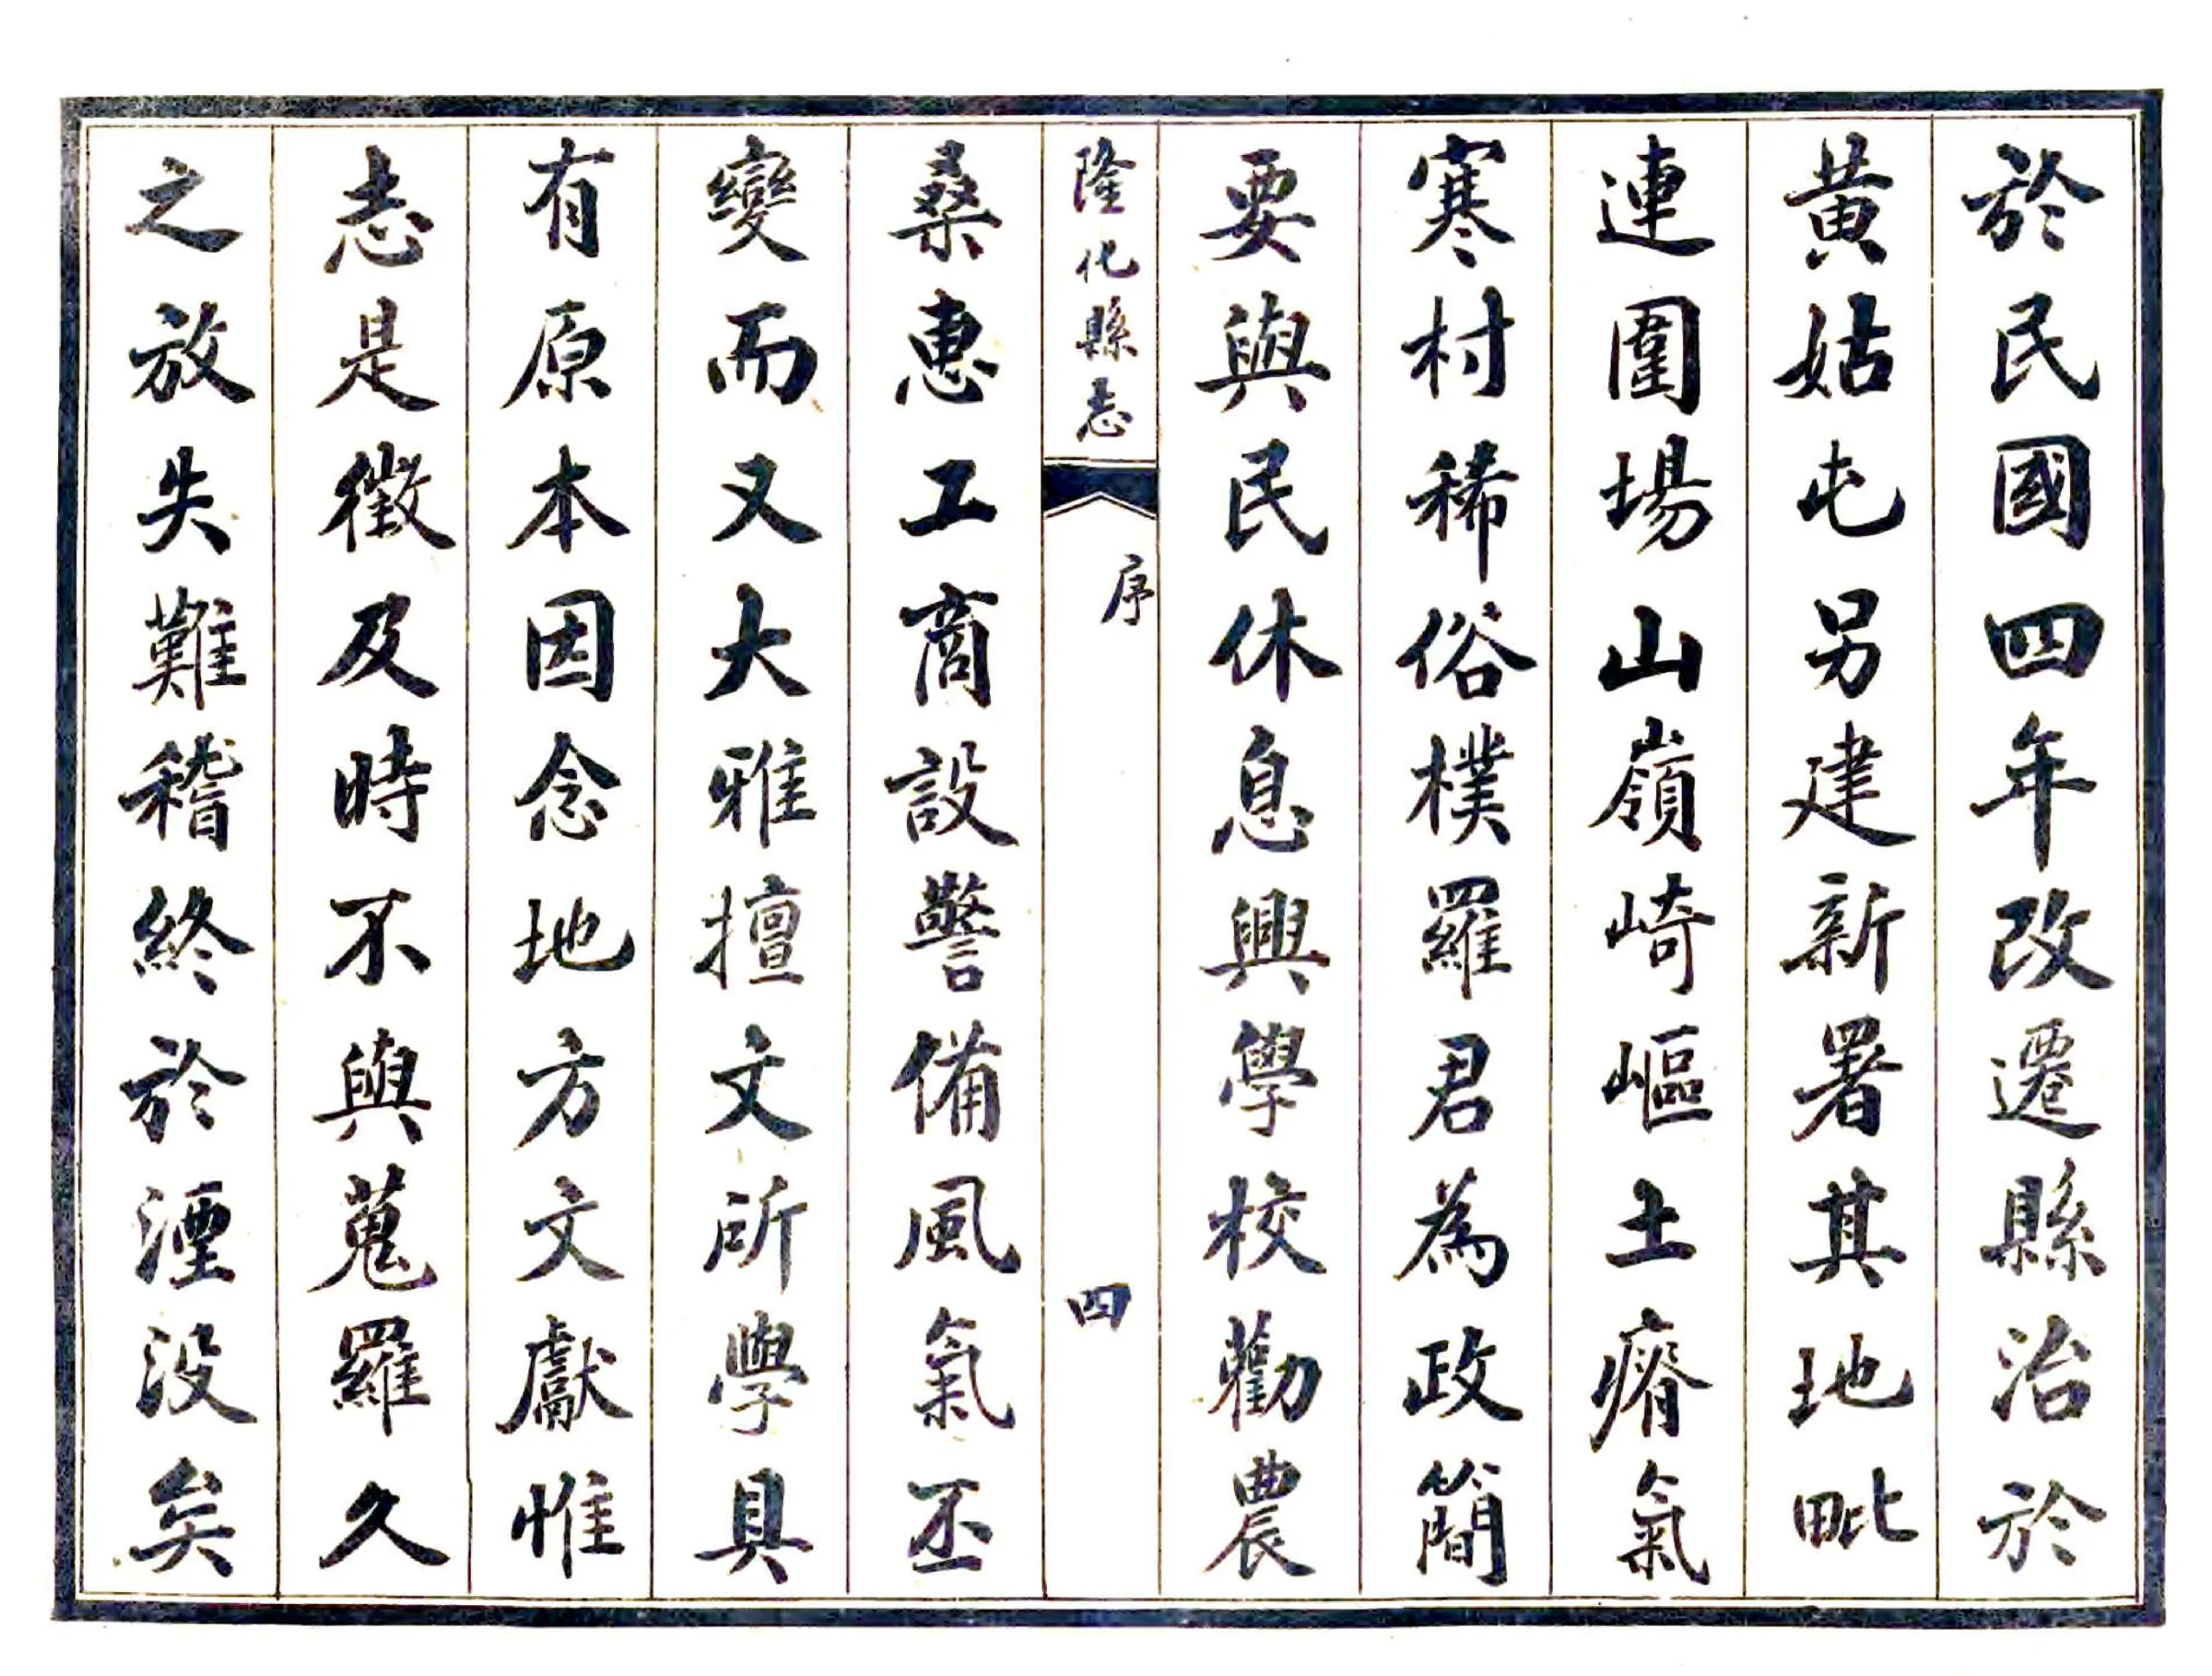 於民國四年改遷縣治於
黃姑屯另建新署其地毗
連圍場山嶺崎嶇土瘠氣
寒村稀俗樸羅君為政簡
要與民休息興學校勸農
隆化縣志
序
四
桑惠工商設警備風氣丕
變而又大雅擅文所學具
有原本因念地方文獻惟
志是徵及時不與蒐羅久
之放失難稽終於湮没矣